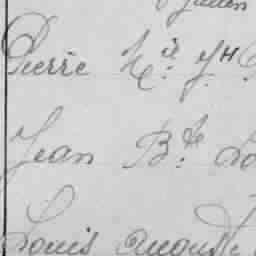 Julien
Pierre M.ie J.H
Jean B.te Lo
Louis Auguste